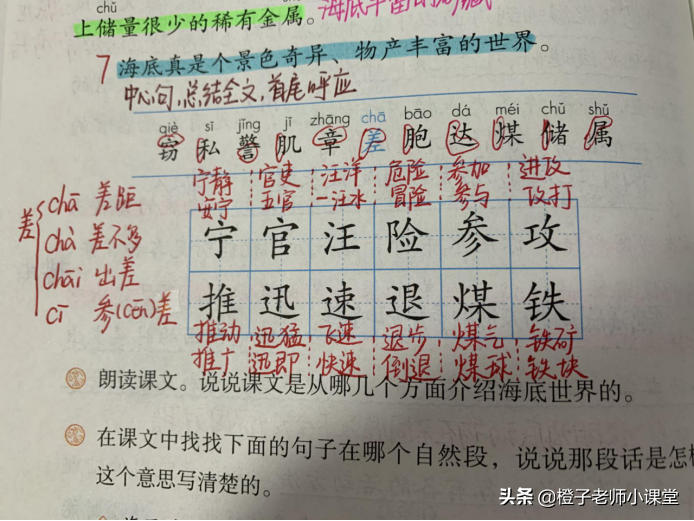 chǔ
上储量很少的稀有金属。
7 海底真是个景色奇异、物产丰富的世界。
中心句,总结全文,首尾呼应
qiè sī jǐng jī zhāng chā bāo dá méi chǔ shǔ
窃 私 警 肌 章 差 胞 达 煤 储 属
宁静 官吏 汪洋 危险 参加 进攻
安宁 五官 一汪水 冒险 参与 攻打
差 chā 差距
chà 差不多
chāi 出差
cī 参(cēn)差
宁 官 汪 险 参 攻
推 迅 速 退 煤 铁
推动 迅猛 飞速 退步 煤气 铁矿
推广 迅即 快速 倒退 煤球 铁块
朗读课文。说说课文是从哪几个方面介绍海底世界的。
在课文中找找下面的句子在哪个自然段,说说那段话是怎
这个意思写清楚的。
头条 @橙子老师小课堂